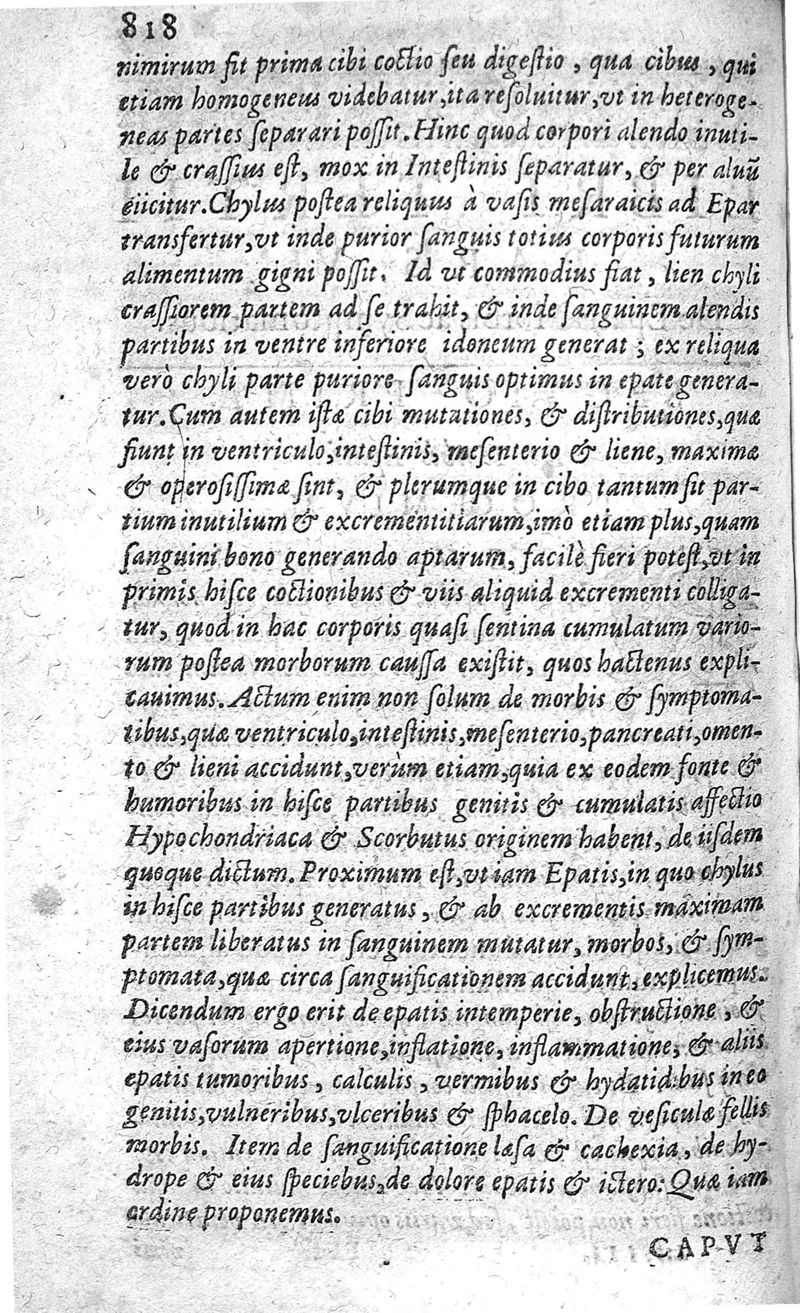 818
nimirum fit prima cibi coctio seu digestio, qua cibus, qui
etiam homogeneus videbatur, ita resoluitur, vt in heteroge-
neas partes separari possit. Hinc quod corpori alendo inuti-
le & crassius est, mox in Intestinis separatur, & per aluũ
eiicitur. Chylus postea reliquus à vasis mesaraicis ad Epar
transfertur, vt inde purior sanguis totius corporis futurum
alimentum gigni possit. Id vt commodius fiat, lien chyli
crassiorem partem ad se trahit, & inde sanguinem alendis
partibus in ventre inferiore idoneum generat; ex reliqua
verò chyli parte puriore sanguis optimus in epate genera-
tur. Cum autem istæ cibi mutationes, & distributiones, quæ
fiunt in ventriculo, intestinis, mesenterio & liene, maximæ
& operosissimæ sint, & plerumque in cibo tantum sit par-
tium inutilium & excrementitiarum, imò etiam plus, quam
sanguini bono generando aptarum, facilè fieri potest, vt in
primis hisce coctionibus & viis aliquid excrementi colliga-
tur, quod in hac corporis quasi sentina cumulatum vario-
rum postea morborum caussa existit, quos hactenus expli-
cauimus. Actum enim non solum de morbis & symptoma-
tibus, quæ ventriculo, intestinis, mesenterio, pancreati, omen-
to & lieni accidunt, verùm etiam, quia ex eodem fonte &
humoribus in hisce partibus genitis & cumulatis affectio
Hypochondriaca & Scorbutus originem habent, de iisdem
quoque dictum. Proximum est, vt iam Epatis, in quo chylus
in hisce partibus generatus, & ab excrementis maximam
partem liberatus in sanguinem mutatur, morbos, & sym-
ptomata, quæ circa sanguificationem accidunt, explicemus.
Dicendum ergo erit de epatis intemperie, obstructione, &
eius vasorum apertione, inflatione, inflammatione, & aliis
epatis tumoribus, calculis, vermibus & hydatidibus in eo
genitis, vulneribus, vlceribus & sphacelo. De vesiculæ fellis
morbis. Item de sanguificatione læsa & cachexia, de hy-
drope & eius speciebus, de dolore epatis & ictero: Quæ iam
ordine proponemus.
CAPVT